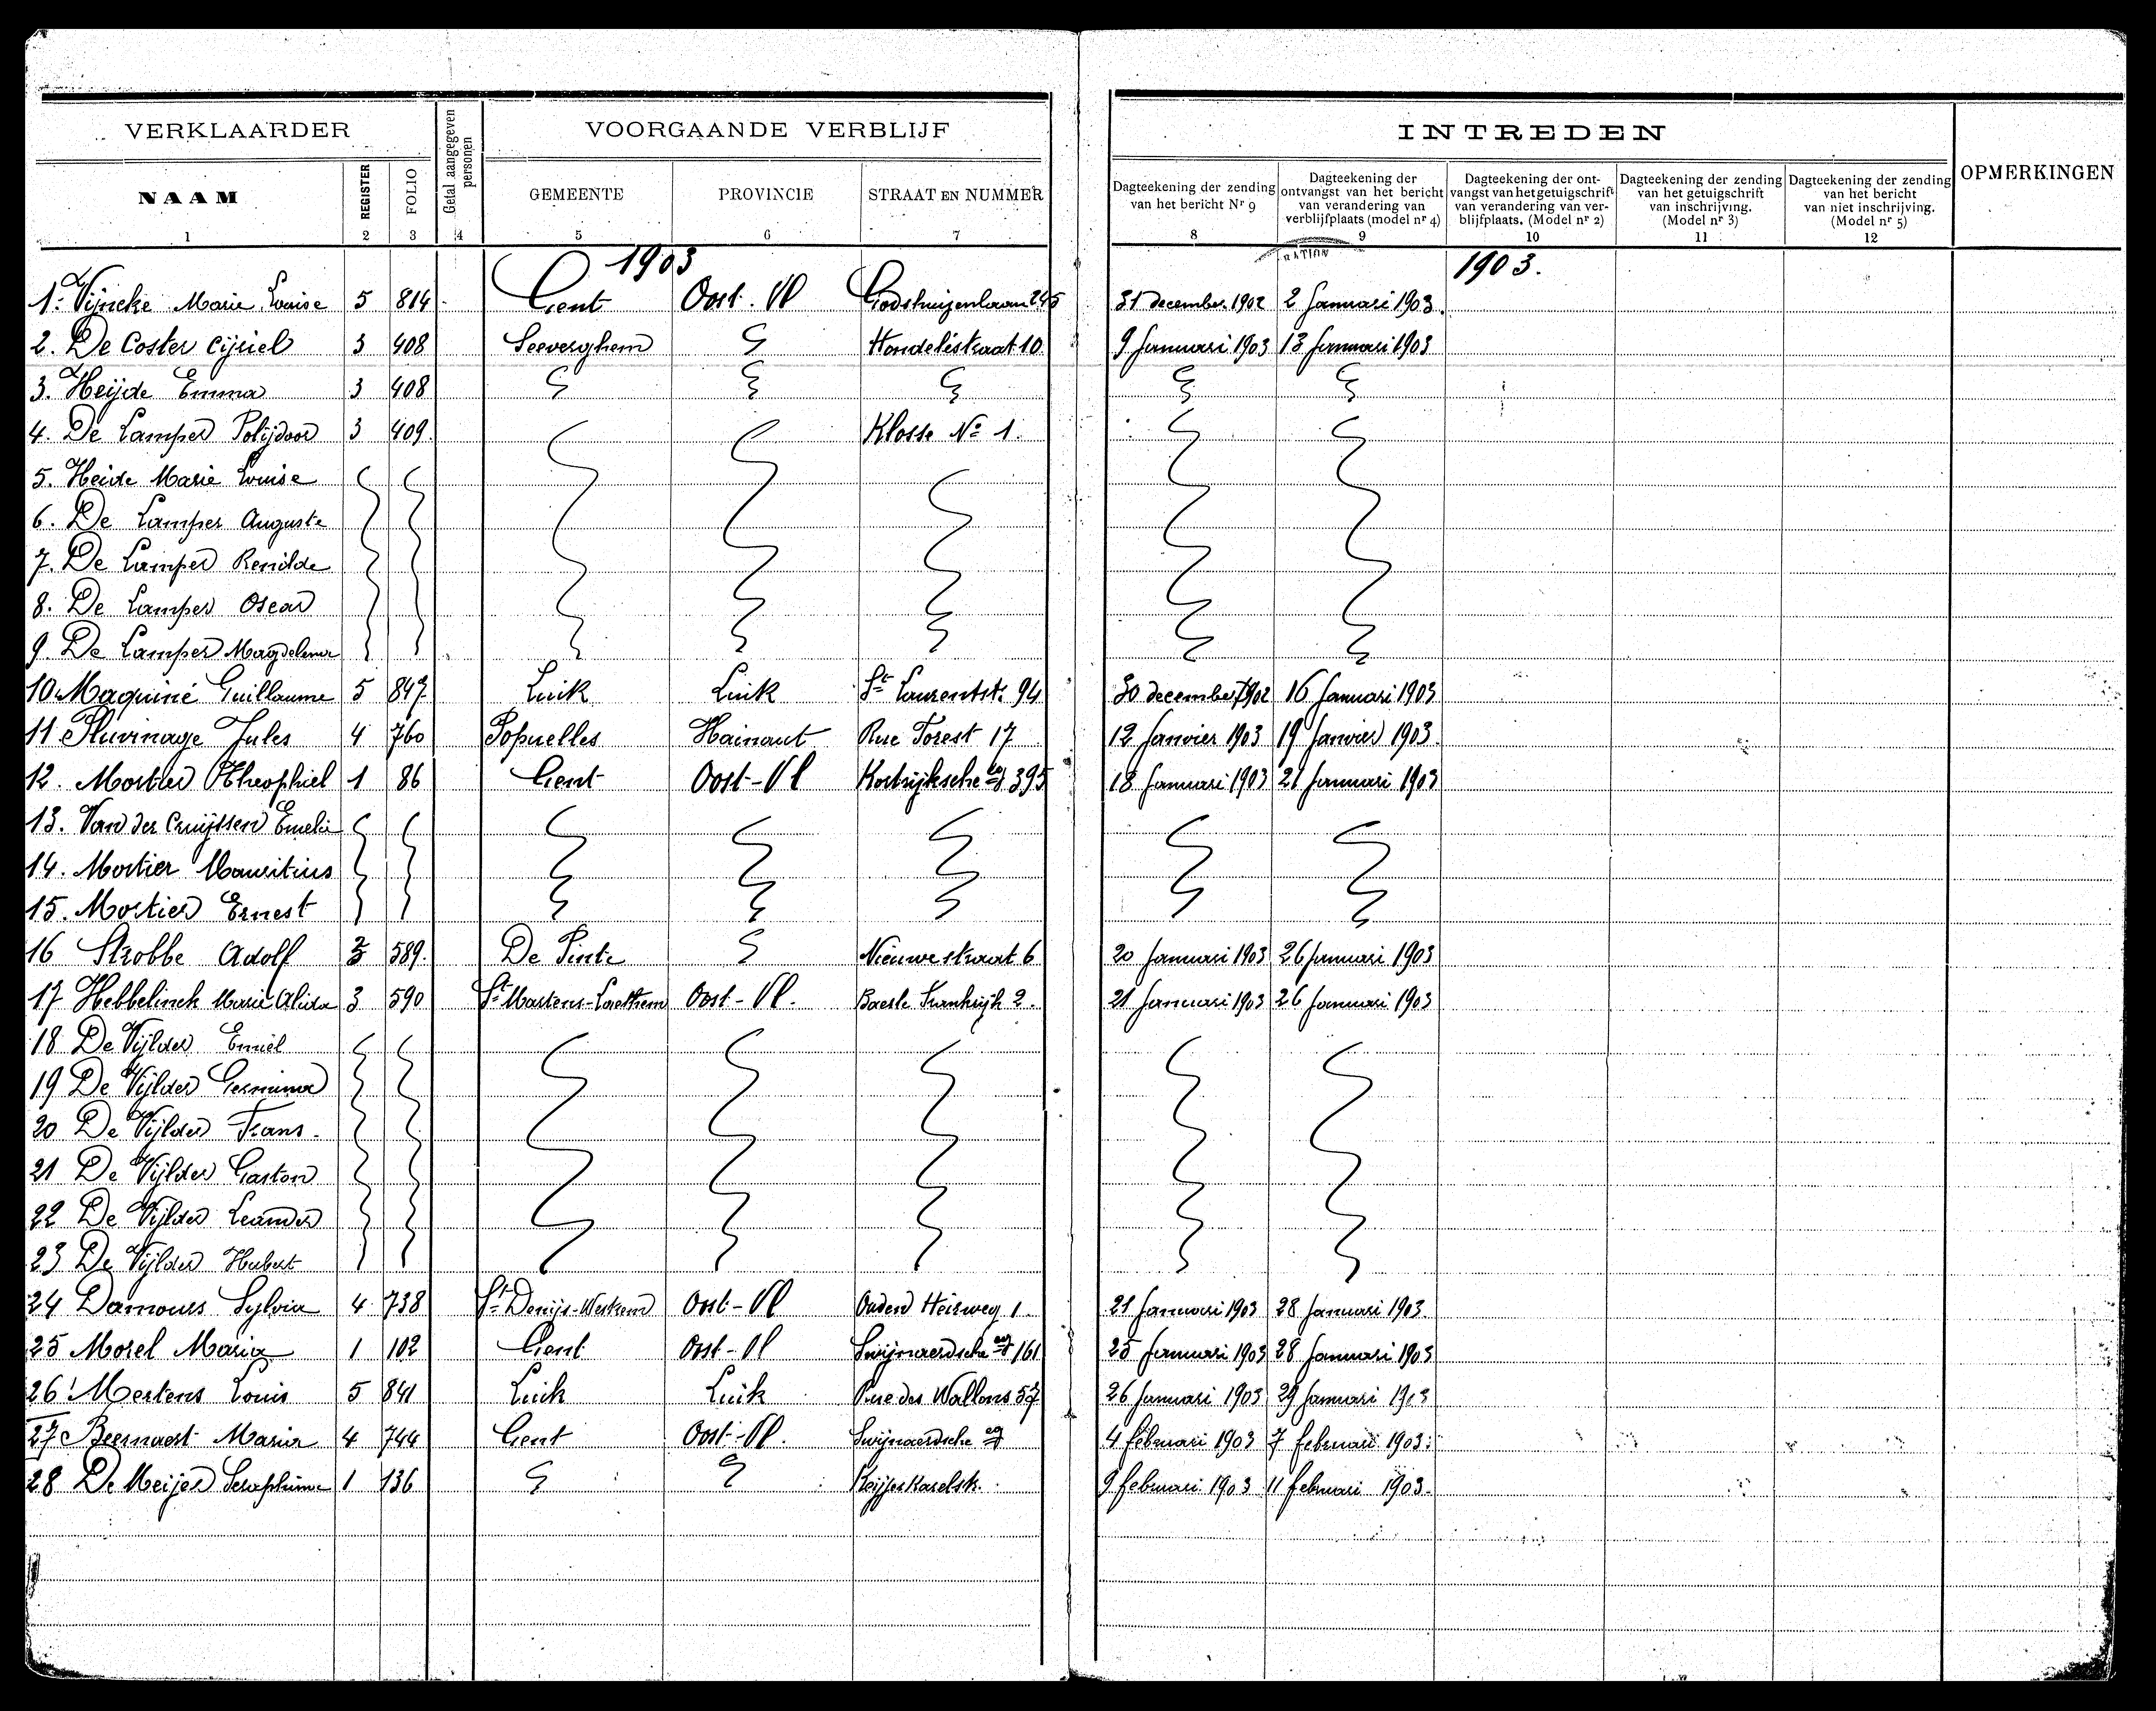 VERKLAARDER
Getal aangegeven personen
VOORGAANDE VERBLIJF
INTREDEN
OPMERKINGEN
NAAM REGISTER FOLIO GEMEENTE PROVINCIE STRAAT EN NUMMER
Dagteekening der zending van het bericht Nr 9
Dagteekening der ontvangst van het bericht van verandering van verblijfplaats (model nr 4)
Dagteekening der ont-vangst van het getuigschrift van verandering van ver-blijfplaats. (Model nr 2)
Dagteekening der zending van het getuigschrift van inschrijving. (Model nr 3)
Dagteekening der zending van het bericht van niet inschrijving. (Model nr 5)
1 2 3 4 5 6 7 8 9 10 11 12
1903 1903.
1. Vijncke Marie Louise 5 814 Gent Oost. Vl Godshuizenlaan 245 31 december 1902 2 Januari 1903.
2. De Coster Cijriel 3 408 Seeverghem Hondelestraat 10 9 Januari 1903 13 Januari 1903
3. Heijde Emma 3 408
4. De Lamper Polijdoor 3 409. Klosse No 1.
5. Heide Marie Louise
6. De Lamper Auguste
7. De Lamper Renilde
8. De Lamper Oscar
9. De Lamper Magdelena
10. Maquiné Guillaume 5 847 Luik Luik St Laurentst. 94 30 december 1902 16 Januari 1903
11. Pluvinage Jules 4 760 Popuelles Hainaut Rue Forest 17 12 Janvier 1903 19 Janvier 1903.
12. Mortier Theophiel 1 86 Gent Oost-Vl Kortrijksche stg 395 18 Januari 1903 21 Januari 1903
13. Van der Cruijssen Emelie
14. Mortier Mauritius
15. Mortier Ernest
16 Strobbe Adolf 3 589. De Pinte Nieuwestraat 6 20 Januari 1903 26 Januari 1903
17 Hebbelinck Marie Alida 3 590 St Martens-Laethem Oost-Vl. Baerle Frankrijk 2. 21 Januari 1903 26 Januari 1903
18 De Vijlder Emiel
19 De Vijlder Germina
20 De Vijlder Frans.
21 De Vijlder Gaston
22 De Vijlder Leander
23 De Vijlder Hubert
24 Damours Sylvia 4 738 St Denijs-Westrem Oost-Vl Ouden Heirweg 1. 21 Januari 1903 28 Januari 1903.
25 Morel Maria 1 102 Gent Oost-Vl Swijnaerdsche stg 161 25 Januari 1903 28 Januari 1903
26 Mertens Louis 5 841 Luik Luik Rue des Wallons 57 26 Januari 1903 29 Januari 1903
27 Beernaert Maria 4 744 Gent Oost-Vl. Swijnaerdsche stg 4 februari 1903 7 februari 1903.
28 De Meijer Seraphine 1 136 Keijzer Karelstr. 9 februari 1903 11 februari 1903.